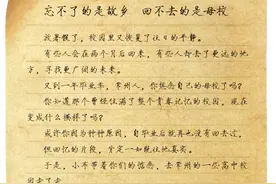 忘不了的是故乡 回不去的是母校
放暑假了，校园里又恢复了往日的平静。
有些人会在两个月后回来，有些人却去了更远的地
方，寻找更广阔的未来。
又到一年毕业季，常州人，你想念自己的母校了吗？
你知道那个曾经住满了整个青春记忆的校园，现在
变成什么模样了吗？
或许你因为种种原因，自毕业后就再也没有回去过，
但回忆的片段，肯定一如既往地真实。
于是，小不带着你们的惦念，去常州的一些高中校
园走了走